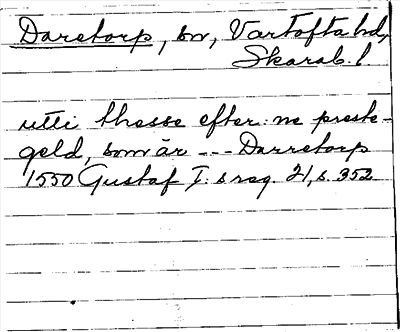 Daretorp, sn, Vartofta hd,
Skarab. l.
utti thesse efter: ne preste-
geld, som är --- Darretorp
1550 Gustaf I:s reg. 21, s. 352